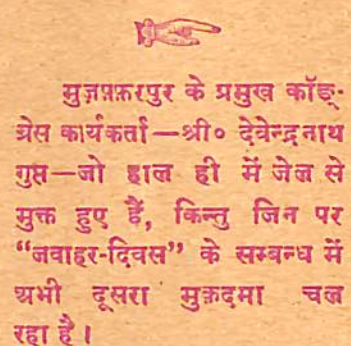 मुज़फ़्फ़रपुर के प्रमुख कॉङ्-
ग्रेस कार्यकर्ता—श्री० देवेन्द्रनाथ
गुप्त—जो हाल ही में जेल से
मुक्त हुए हैं, किन्तु जिन पर
“जवाहर-दिवस” के सम्बन्ध में
अभी दूसरा मुक़दमा चल
रहा है।